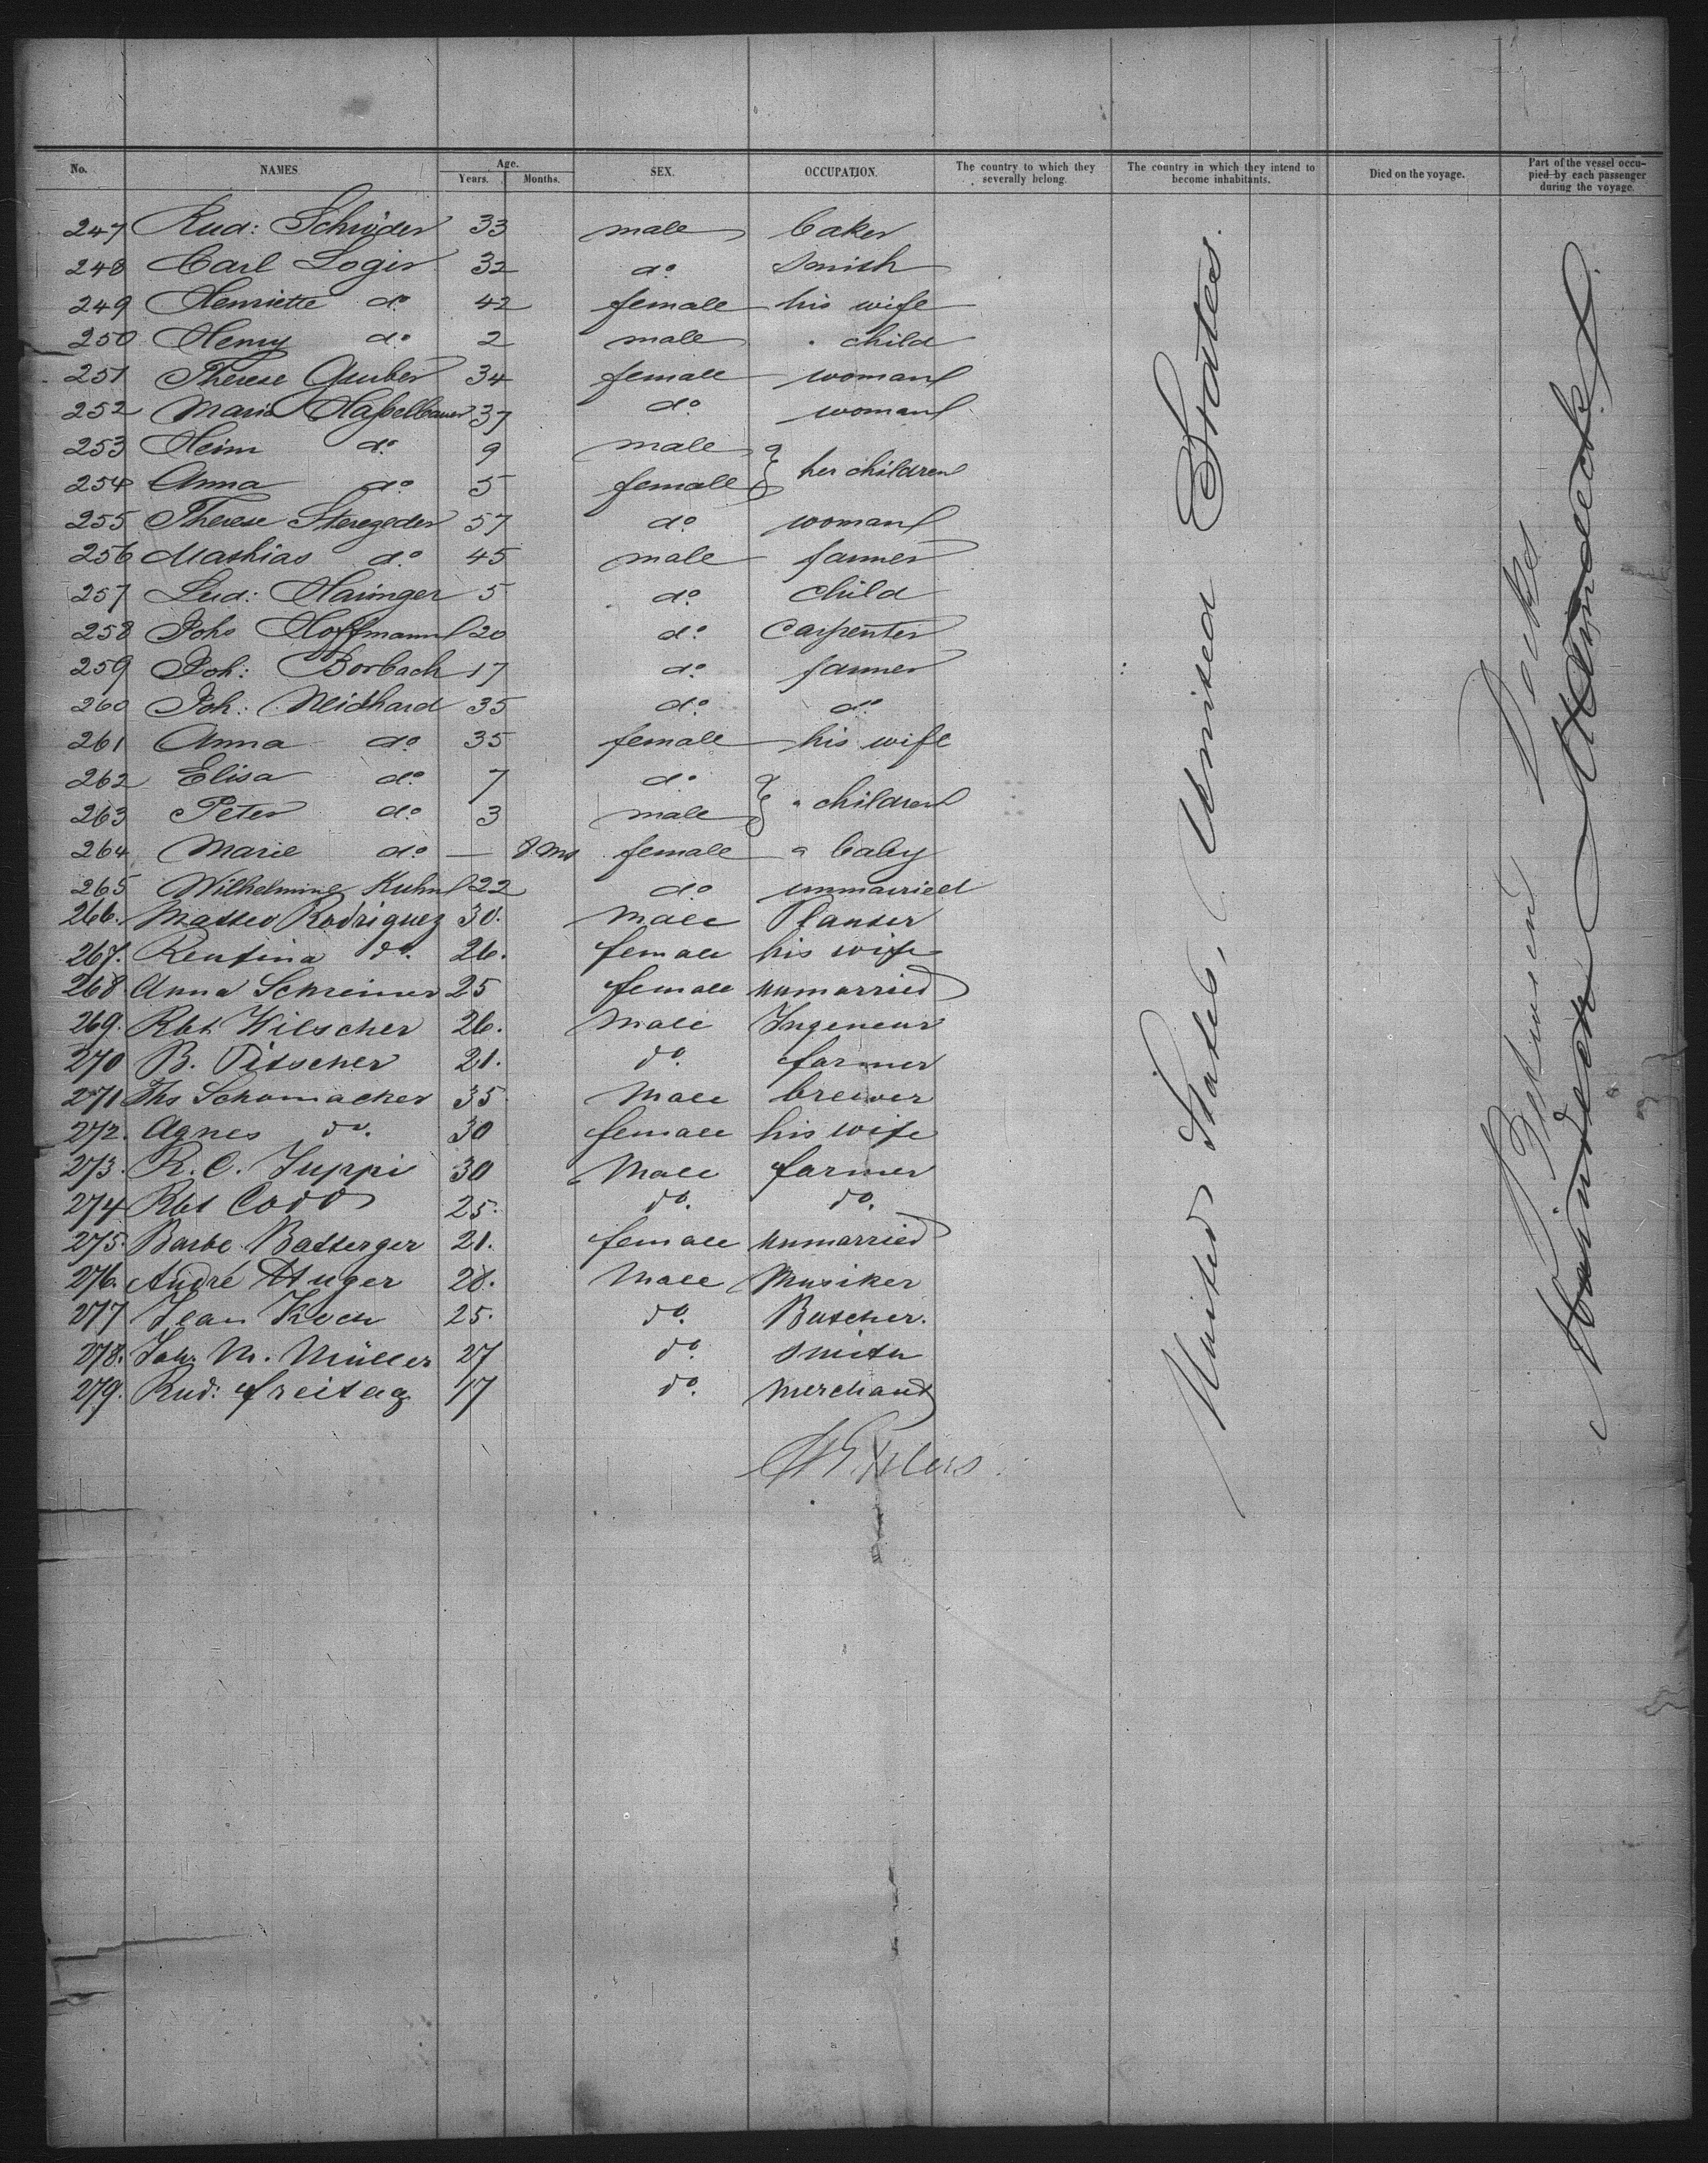 No. NAMES Age. Years. Months. SEX. OCCUPATION. The country to which they severally belong. The country in which they intend to become inhabitants. Died on the voyage. Part of the vessel occupied by each passenger during the voyage.
247 Rud: Schröder 33 male baker
248 Carl Logir 32 do smith
249 Henriette do 42 female his wife
250 Henry do 2 male " child
251 Therese Gruber 34 female woman
252 Maria Haßelbauer 37 do woman
253 Heinr do 9 male } her children
254 Anna do 5 female
255 Therese 57 do woman
256 Mathias do 45 male farmer
257 Lud: Hainger 5 do child
258 Joh: Hoffmann 20 do Carpenter
259 Joh: Borbach 17 do farmer
260 Joh: Neidhard 35 do do
261 Anna do 35 female his wife
262 Elisa do 7 do } " children
263 Peter do 3 male
264 Marie do — 8.Ms female " baby
265 Wilhelmine Kuhn 22 do unmarried
266. Matteo Rodriguez 30. Male Planter
267. Rentina do. 26. female his wife
268. Anna Schreiner 25 female unmarried
269. Rbt Hilscher 26. Male Ingeneur
270 B. Pitscher 21. do. farmer
271 Ths Schomacker 35 Male brewer
272. Agnes do. 30 female his wife
273. R. C. Juppi 30 Male farmer
274 Rbt Codd 25. do. do.
275. Barbe Batterger 21. female unmarried
276. André Huger 28. Male Musiker
277 Jean Koch 25. do. Butcher.
278. Joh. M. Müller 27 do. smith
279. Rud: freitag 17 do. merchand
United States, United States.
Between Decks